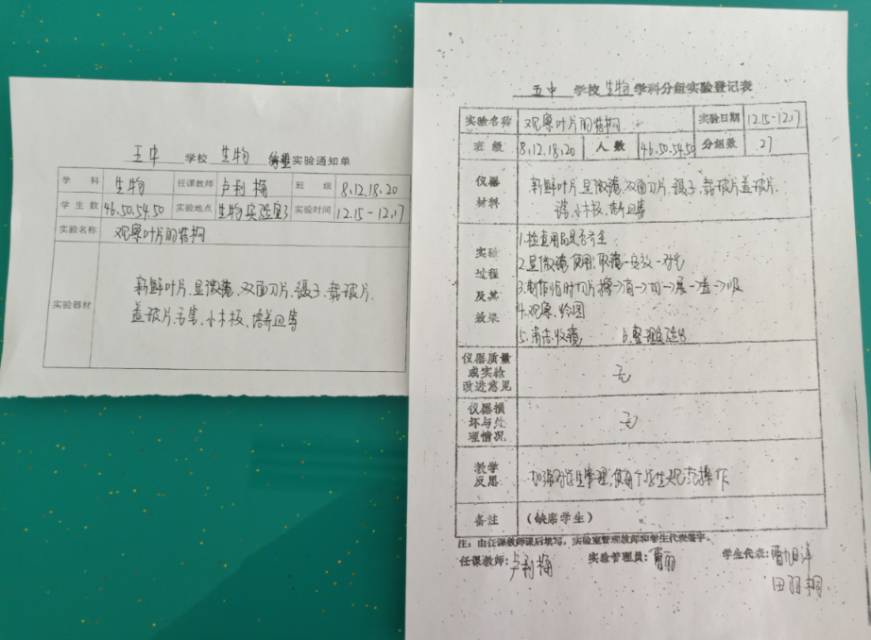 五中 学校 生物 实验通知单
学 科 生物 任课教师 卢利梅 班 级 8.12.18.20
学生数 46.50.54.50 实验地点 生物实验室3 实验时间 12.15-12.17
实验名称 观察叶片的结构
实验器材 新鲜叶片、显微镜、双面刀片、镊子、载玻片、
盖玻片、毛笔、小木板、培养皿等
五中 学校 生物 学科分组实验登记表
实验名称 观察叶片的结构 实验日期 12.15-12.17
班 级 8.12.18.20 人 数 46.50.54.50 分组数 27
仪器 新鲜叶片、显微镜、双面刀片、镊子、载玻片、盖玻片、
材料 小木板、培养皿等
实验 1.检查用品是否齐全
过程 2.显微镜使用:取镜→安放→对光
及其 3.制作临时切片:擦→滴→切→展→盖→吸
效果 4.观察、绘图
5.清洁收镜 6.整理
仪器质量
或实验 无
改进意见
仪器损
坏与处 无
理情况
教学
反思 加强对学生管理,使每个学生规范操作
备注 (缺席学生)
注:由任课教师课后填写,实验室管理教师和学生代表签字。
任课教师:卢利梅 实验管理员: 学生代表: